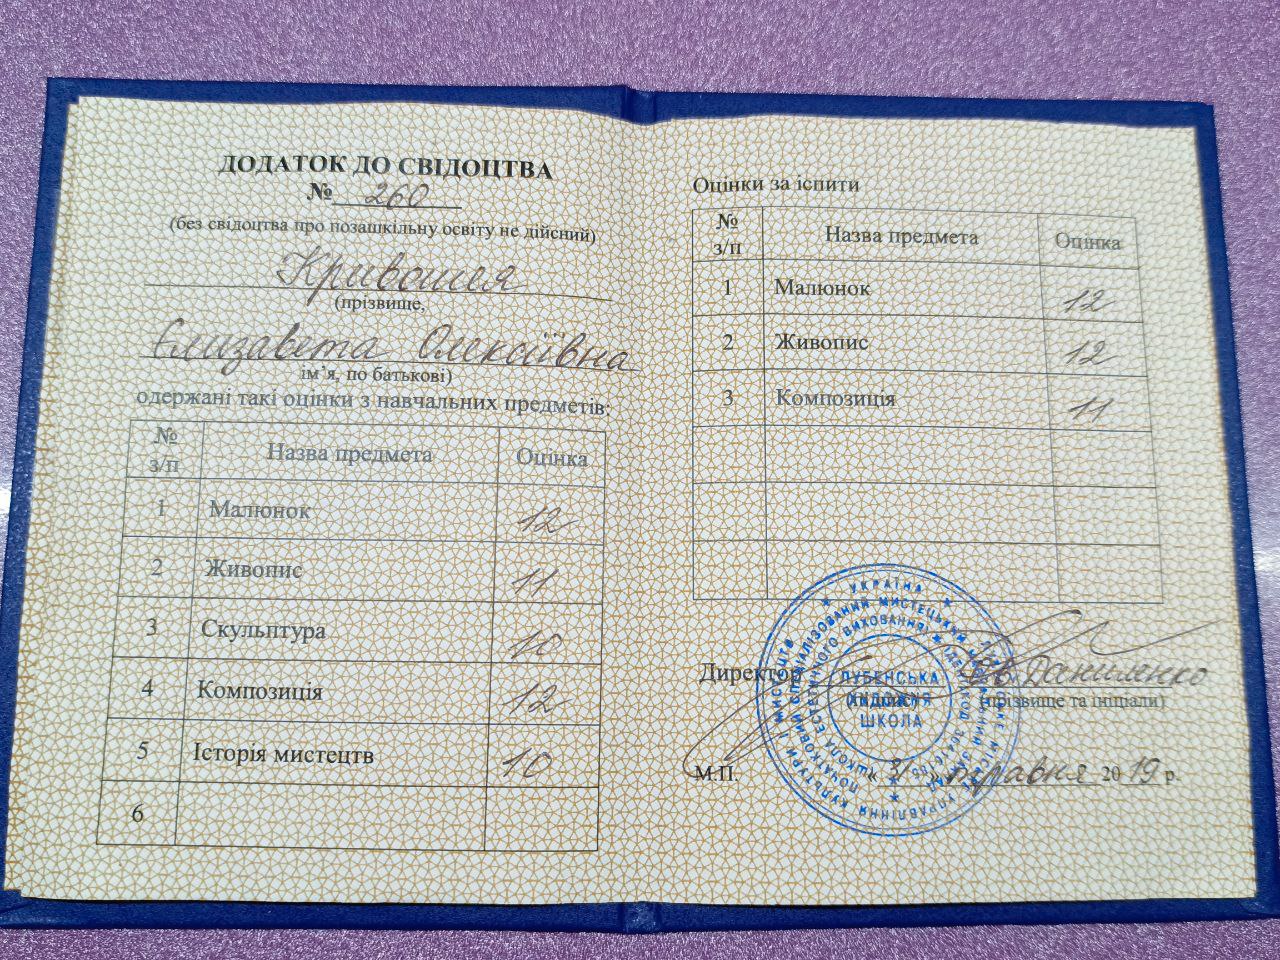 ДОДАТОК ДО СВІДОЦТВА
№ 260
(без свідоцтва про позашкільну освіту не дійсний)
Кривошея
(прізвище,
Єлизавета Олексіївна
ім’я, по батькові)
одержані такі оцінки з навчальних предметів:
№ з/п Назва предмета Оцінка
1 Малюнок 12
2 Живопис 11
3 Скульптура 10
4 Композиція 12
5 Історія мистецтв 10
6
Оцінки за іспити
№ з/п Назва предмета Оцінка
1 Малюнок 12
2 Живопис 12
3 Композиція 11
Директор Є.В. Даниленко
(підпис) (прізвище та ініціали)
М.П. « 31 » травня 2019 р.
УКРАЇНА
УПРАВЛІННЯ КУЛЬТУРИ І МИСТЕЦТВ
ПОЧАТКОВИЙ СПЕЦІАЛІЗОВАНИЙ МИСТЕЦЬКИЙ НАВЧАЛЬНИЙ ЗАКЛАД
ШКОЛА ЕСТЕТИЧНОГО ВИХОВАННЯ
ЛУБЕНСЬКА
ХУДОЖНЯ
ШКОЛА